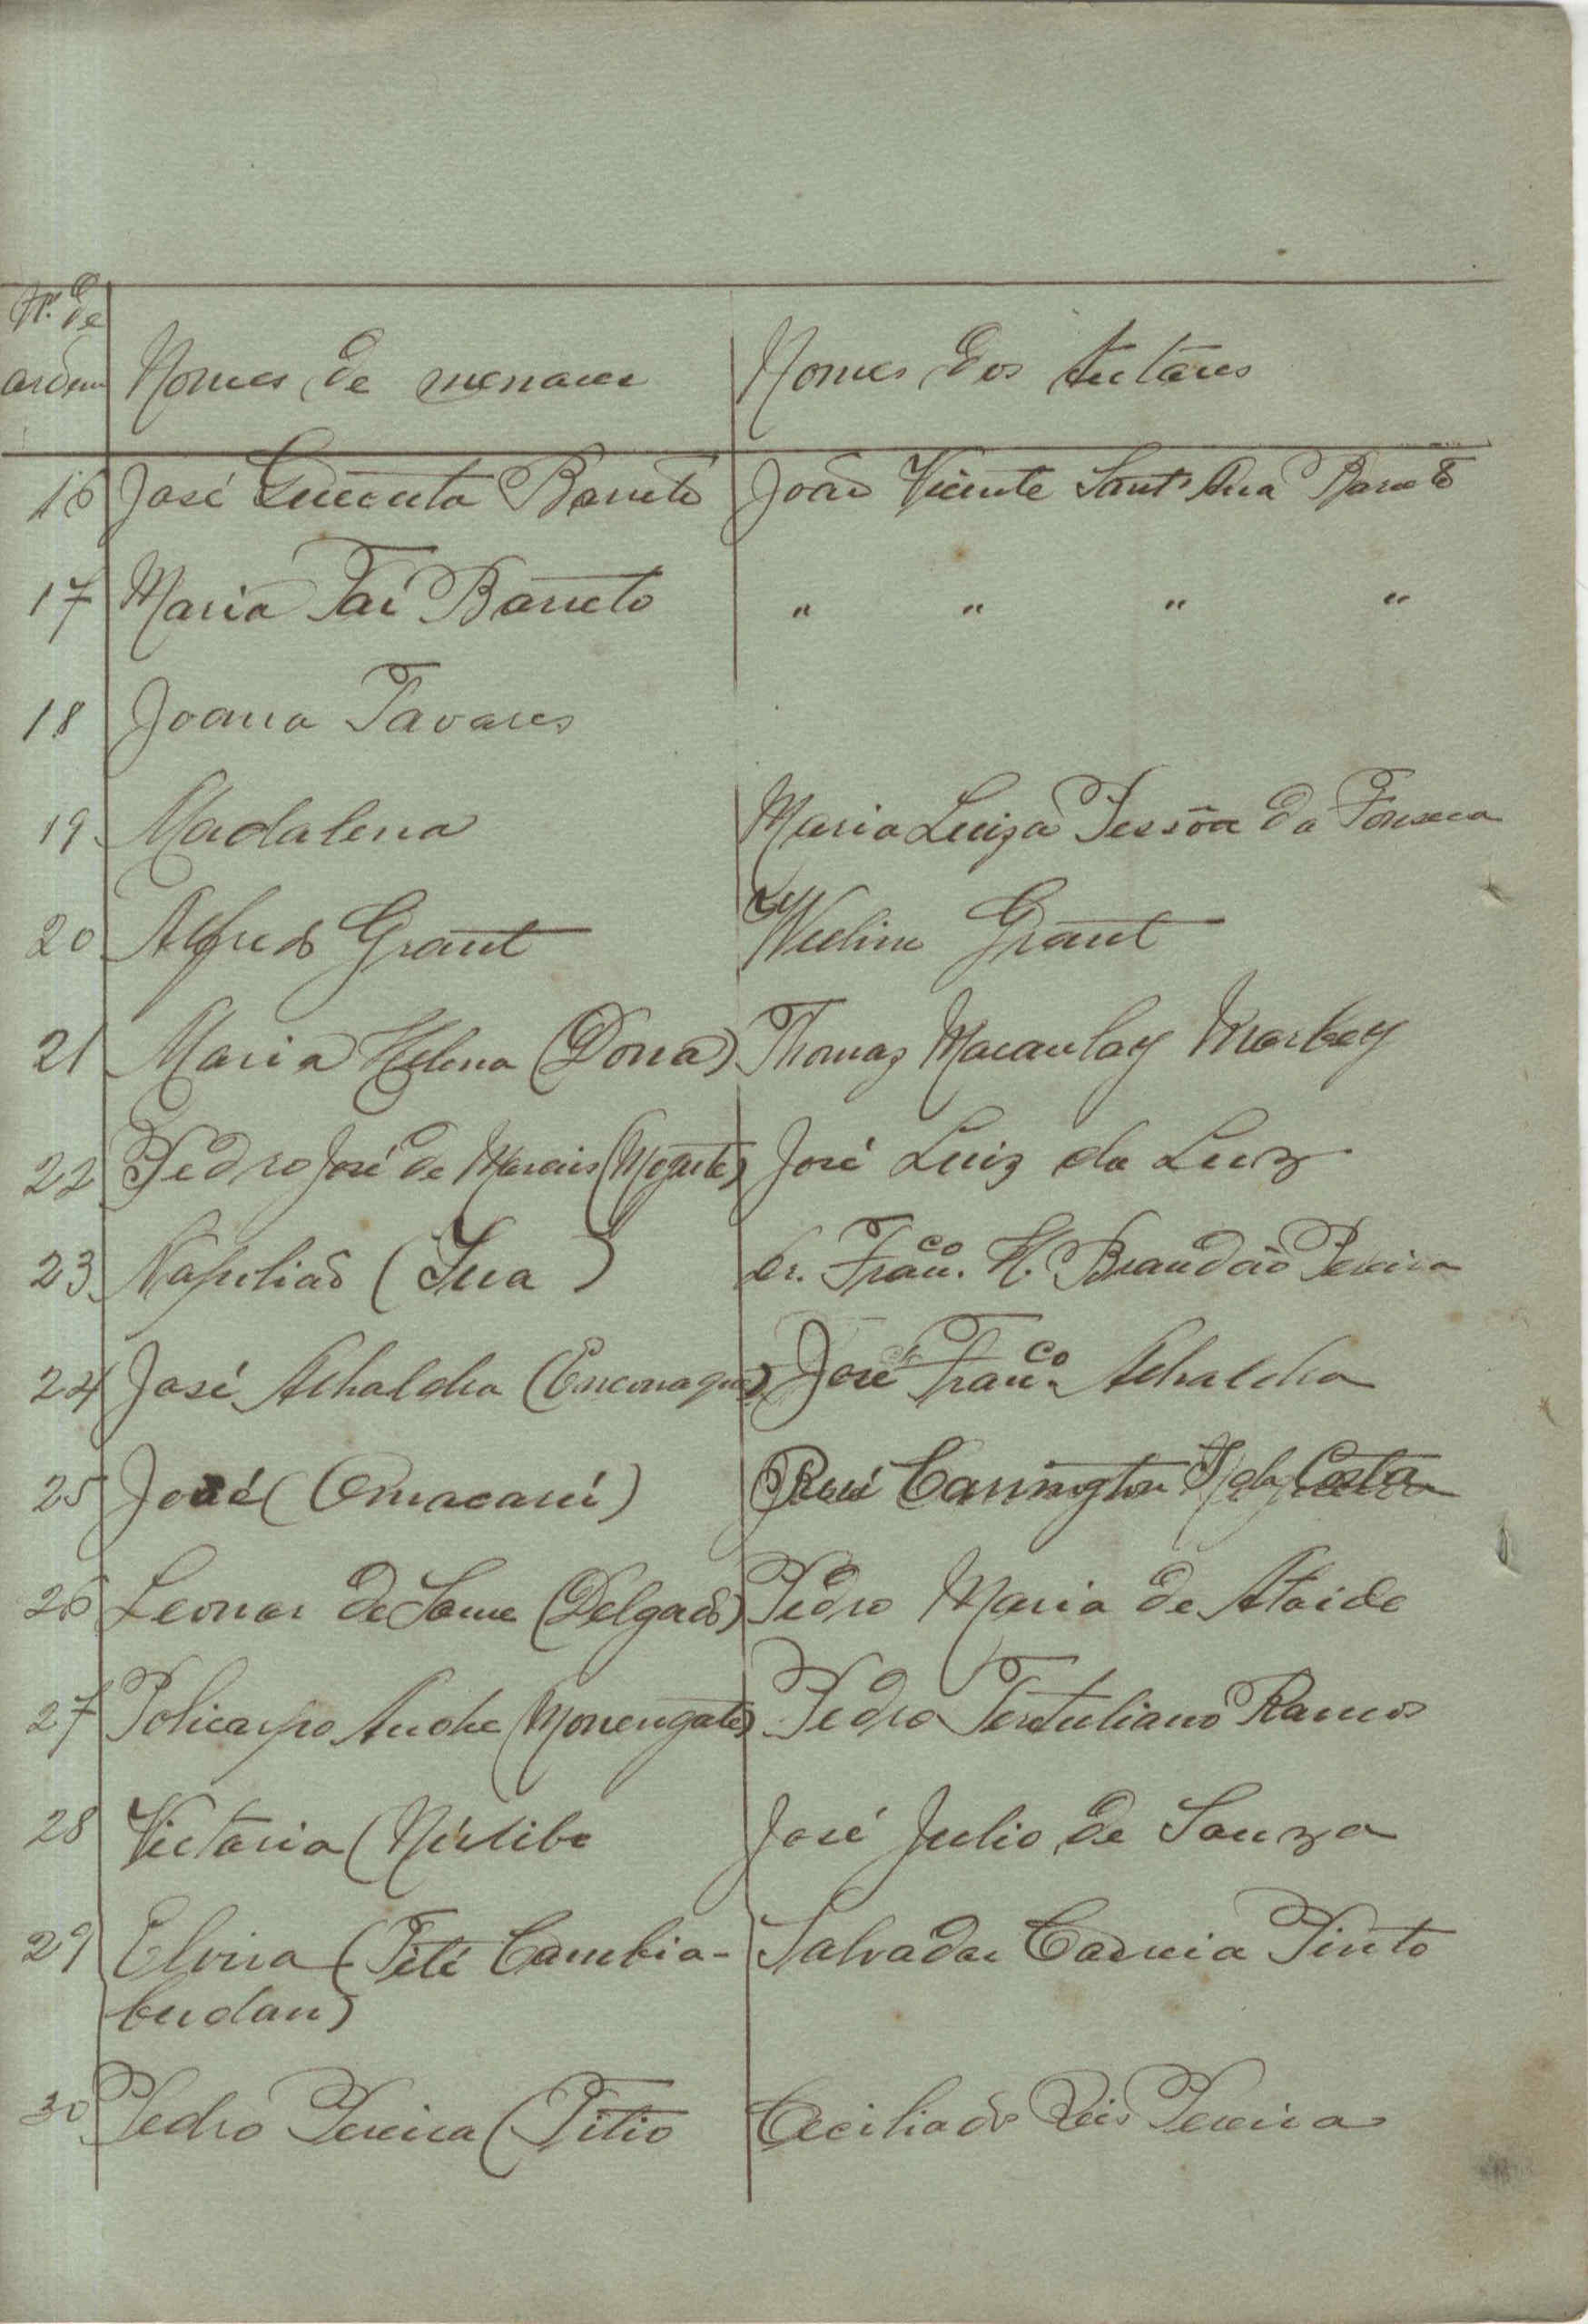 Nº de
ordem Nomes de menores Nomes dos tutores
16 José Barreto João Vicente Sant'Ana Barreto
17 Maria Fai Barreto " " " "
18 Joana Tavares
19 Madalena Maria Luiza Pessôa da Fonseca
20 Alfredo Grant Grant
21 Maria Helena (Dona) Thomaz Macaulay Morbey
22 Pedro José de Morais José Luiz da Luz
23 Napolião ( ) Dr. Franco. H. Brandão Pereira
24 José José Franco.
25 José (Omacarú) Carrington da Costa
26 Leonor de (Delgado) Pedro Maria de Ataide
27 Policarpo Pedro Tertuliano Ramos
28 Victoria José Julio de Souza
29 Elvira (Teté Cambia- Salvador Correia Pinto
30 Pedro Pereira (Pitio Cecilia dos Reis Pereira